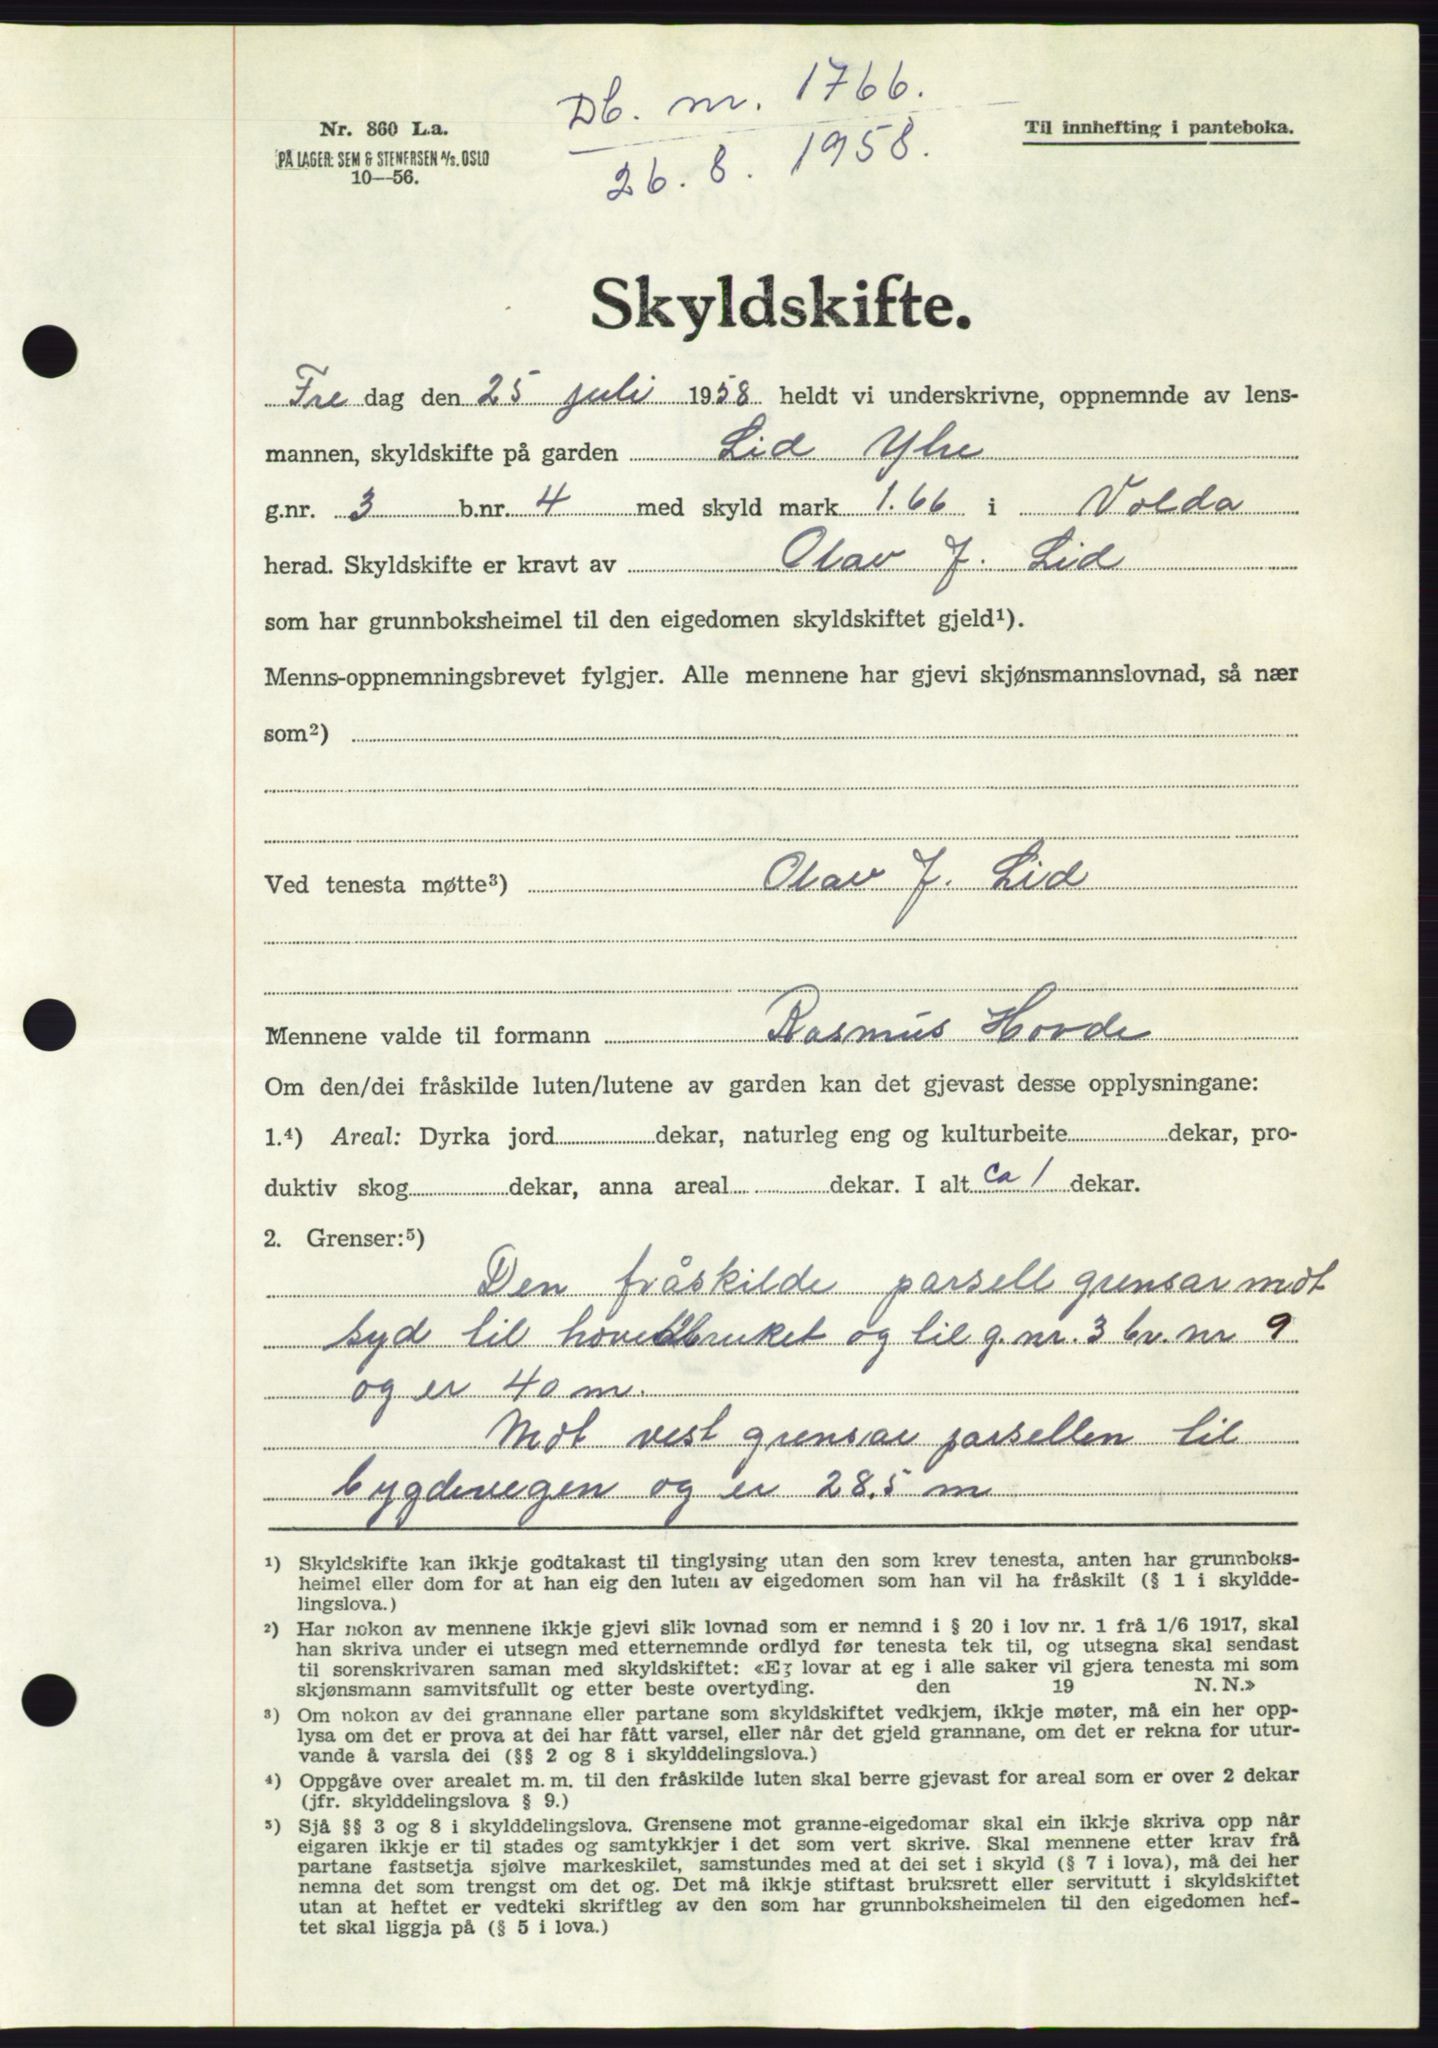 Db. nr. 1766.
26. 8. 1958.
Nr. 860 L.a.
PÅ LAGER: SEM & STENERSEN A/S. OSLO
10—56.
Til innhefting i panteboka.
Skyldskifte.
Fre dag den 25 juli 1958 heldt vi underskrivne, oppnemnde av lens-
mannen, skyldskifte på garden Lid Ytre
g.nr. 3 b.nr. 4 med skyld mark 1.66 i Volda
herad. Skyldskifte er kravt av Olav J. Lid
som har grunnboksheimel til den eigedomen skyldskiftet gjeld¹).
Menns-oppnemningsbrevet fylgjer. Alle mennene har gjevi skjønsmannslovnad, så nær
som²)
Ved tenesta møtte³) Olav J. Lid
Mennene valde til formann Rasmus Hovde
Om den/dei fråskilde luten/lutene av garden kan det gjevast desse opplysningane:
1.⁴) Areal: Dyrka jord dekar, naturleg eng og kulturbeite dekar, pro-
duktiv skog dekar, anna areal dekar. I alt ca 1 dekar.
2. Grenser:⁵)
Den fråskilde parsell grensar mot
syd til hovedbruket og til g.nr. 3 br. nr 9
og er 40 m.
Mot vest grensar parsellen til
bygdevegen og er 28.5 m
¹) Skyldskifte kan ikkje godtakast til tinglysing utan den som krev tenesta, anten har grunnboks-
heimel eller dom for at han eig den luten av eigedomen som han vil ha fråskilt (§ 1 i skyldde-
lingslova.)
²) Har nokon av mennene ikkje gjevi slik lovnad som er nemnd i § 20 i lov nr. 1 frå 1/6 1917, skal
han skriva under ei utsegn med etternemnde ordlyd før tenesta tek til, og utsegna skal sendast
til sorenskrivaren saman med skyldskiftet: «Eg lovar at eg i alle saker vil gjera tenesta mi som
skjønsmann samvitsfullt og etter beste overtyding. den 19 N. N.»
³) Om nokon av dei grannane eller partane som skyldskiftet vedkjem, ikkje møter, må ein her opp-
lysa om det er prova at dei har fått varsel, eller når det gjeld grannane, om det er rekna for utur-
vande å varsla dei (§§ 2 og 8 i skylddelingslova.)
⁴) Oppgåve over arealet m. m. til den fråskilde luten skal berre gjevast for areal som er over 2 dekar
(jfr. skylddelingslova § 9.)
⁵) Sjå §§ 3 og 8 i skylddelingslova. Grensene mot granne-eigedomar skal ein ikkje skriva opp når
eigaren ikkje er til stades og samtykkjer i det som vert skrive. Skal mennene etter krav frå
partane fastsetja sjølve markeskilet, samstundes med at dei set i skyld (§ 7 i lova), må dei her
nemna det som trengst om det og. Det må ikkje stiftast bruksrett eller servitutt i skyldskiftet
utan at heftet er vedteki skriftleg av den som har grunnboksheimelen til den eigedomen hef-
tet skal liggja på (§ 5 i lova.)